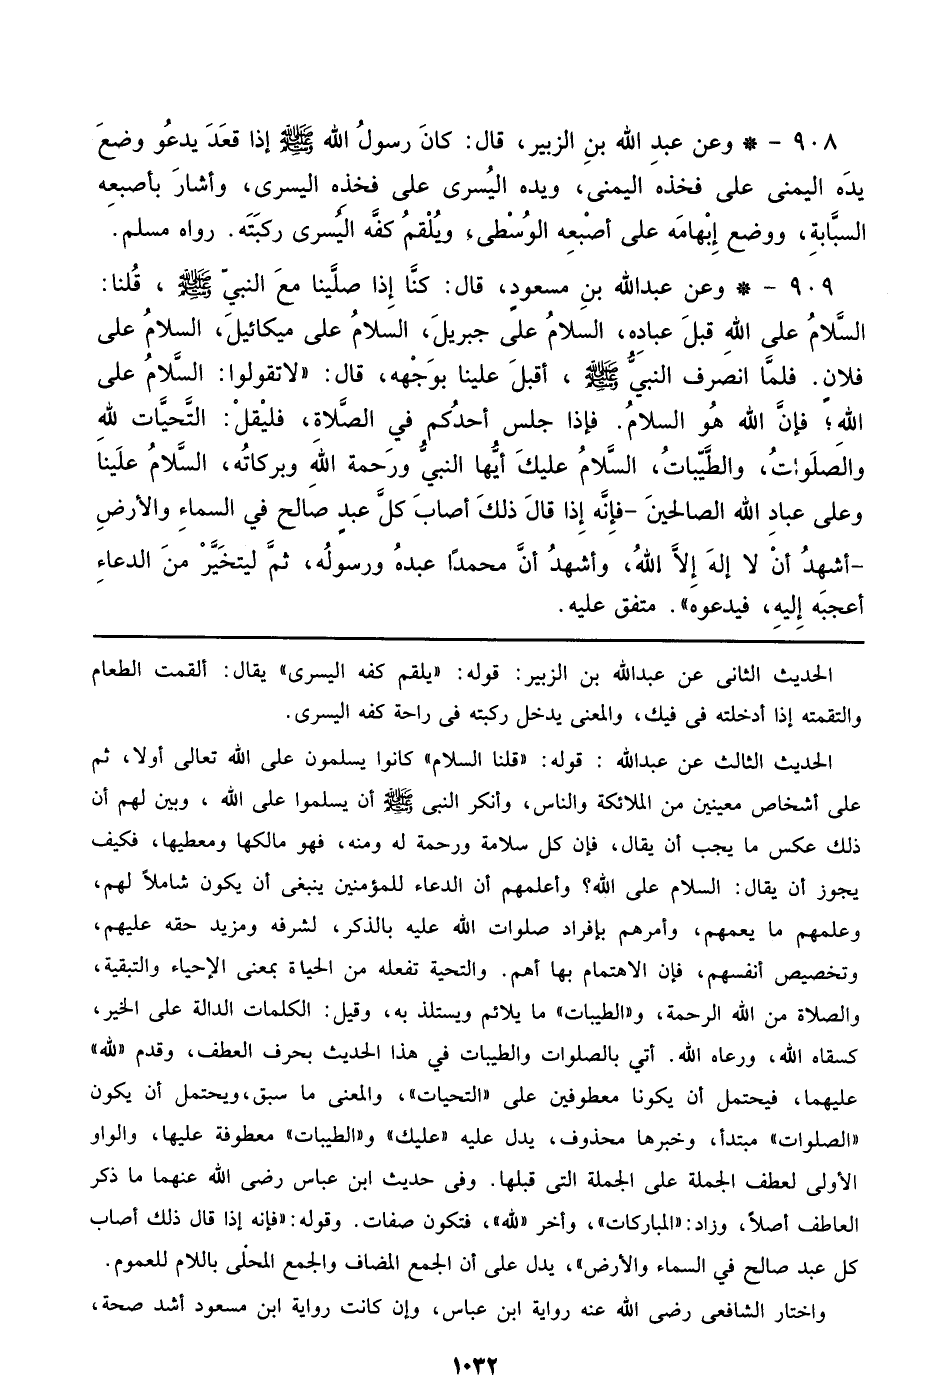 ٩٠٨ - * وعن عبدِ الله بنِ الزبير، قال: كانَ رسولُ الله ﷺ إذا قعَدَ يدعُو وضعَ
يدَه اليمنى على فخذه اليمنى، ويده اليُسرى على فخذِه اليسرى، وأشارَ بأصبعِه
السبَّابةِ، ووضع إبْهامَه على أصبْعِه الوُسْطى، ويُلْقمُ كفَّه اليُسرى ركبَتَه. رواه مسلم.
٩٠٩ - * وعن عبدالله بنِ مسعودٍ، قال: كنَّا إذا صلَّينا معَ النبيّ ﷺ ، قُلنا:
السَّلامُ على اللهِ قبلَ عبادِه، السلامُ على جبريلَ، السلامُ على ميكائيلَ، السلامُ على
فلانٍ. فلمَّا انصرف النبيُّ ﷺ ، أقبلَ علينا بوَجْهه، قال: «لاتقولوا: السَّلامُ على
اللهِ؛ فإنَّ الله هُو السلامُ. فإذا جلس أحدُكم في الصَّلاةِ، فليْقلْ: التَّحيَّات للهِ
والصلَواتُ، والطَّيّباتُ، السَّلامُ عليكَ أيُّها النبيُّ ورَحمة اللهِ وبركاتُه، السلامُ علَينا
وعلى عبادِ الله الصالحينَ -فإنَّه إذا قالَ ذلكَ أصابَ كلَّ عبدٍ صالح في السماءِ والأرضِ
-أشهدُ أنْ لا إلهَ إلاَّ اللهُ، وأشهدُ أنَّ محمدًا عبدهُ ورسولُه، ثمَّ ليتخيَّرْ منَ الدعاءِ
أعجبَه إليهِ، فيدعوه». متفق عليه.
الحديث الثانى عن عبدالله بن الزبير: قوله: «يلقم كفه اليسرى» يقال: ألقمت الطعام
والتقمته إذا أدخلته فى فيك، والمعنى يدخل ركبته فى راحة كفه اليسرى.
الحديث الثالث عن عبدالله : قوله: «قلنا السلام» كانوا يسلمون على الله تعالى أولا، ثم
على أشخاص معينين من الملائكة والناس، وأنكر النبى ﷺ أن يسلموا على الله ، وبين لهم أن
ذلك عكس ما يجب أن يقال، فإن كل سلامة ورحمة له ومنه، فهو مالكها ومعطيها، فكيف
يجوز أن يقال: السلام على الله؟ وأعلمهم أن الدعاء للمؤمنين ينبغى أن يكون شاملاً لهم،
وعلمهم ما يعمهم، وأمرهم بإفراد صلوات الله عليه بالذكر، لشرفه ومزيد حقه عليهم،
وتخصيص أنفسهم، فإن الاهتمام بها أهم. والتحية تفعله من الحياة بمعنى الإحياء والتبقية،
والصلاة من الله الرحمة، و«الطيبات» ما يلائم ويستلذ به، وقيل: الكلمات الدالة على الخير،
كسقاه الله، ورعاه الله. أتي بالصلوات والطيبات في هذا الحديث بحرف العطف، وقدم «لله»
عليهما، فيحتمل أن يكونا معطوفين على «التحيات»، والمعنى ما سبق،ويحتمل أن يكون
«الصلوات» مبتدأ، وخبرها محذوف، يدل عليه «عليك» و«الطيبات» معطوفة عليها، والواو
الأولى لعطف الجملة على الجملة التى قبلها. وفى حديث ابن عباس رضى الله عنهما ما ذكر
العاطف أصلاً، وزاد:«المباركات»، وأخر «لله»، فتكون صفات. وقوله:«فإنه إذا قال ذلك أصاب
كل عبد صالح في السماء والأرض»، يدل على أن الجمع المضاف والجمع المحلْى باللام للعموم.
واختار الشافعى رضى الله عنه رواية ابن عباس، وإن كانت رواية ابن مسعود أشد صحة،
١٠٣٢